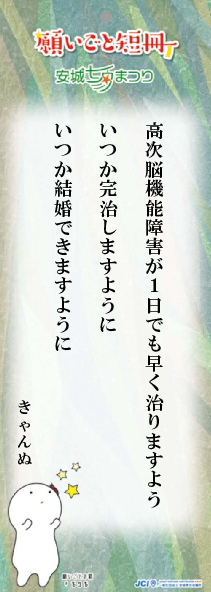 願いごと短冊
安城七夕まつり
高次脳機能障害が1日でも早く治りますよう
いつか完治しますように
いつか結婚できますように
きゃんぬ
JCI